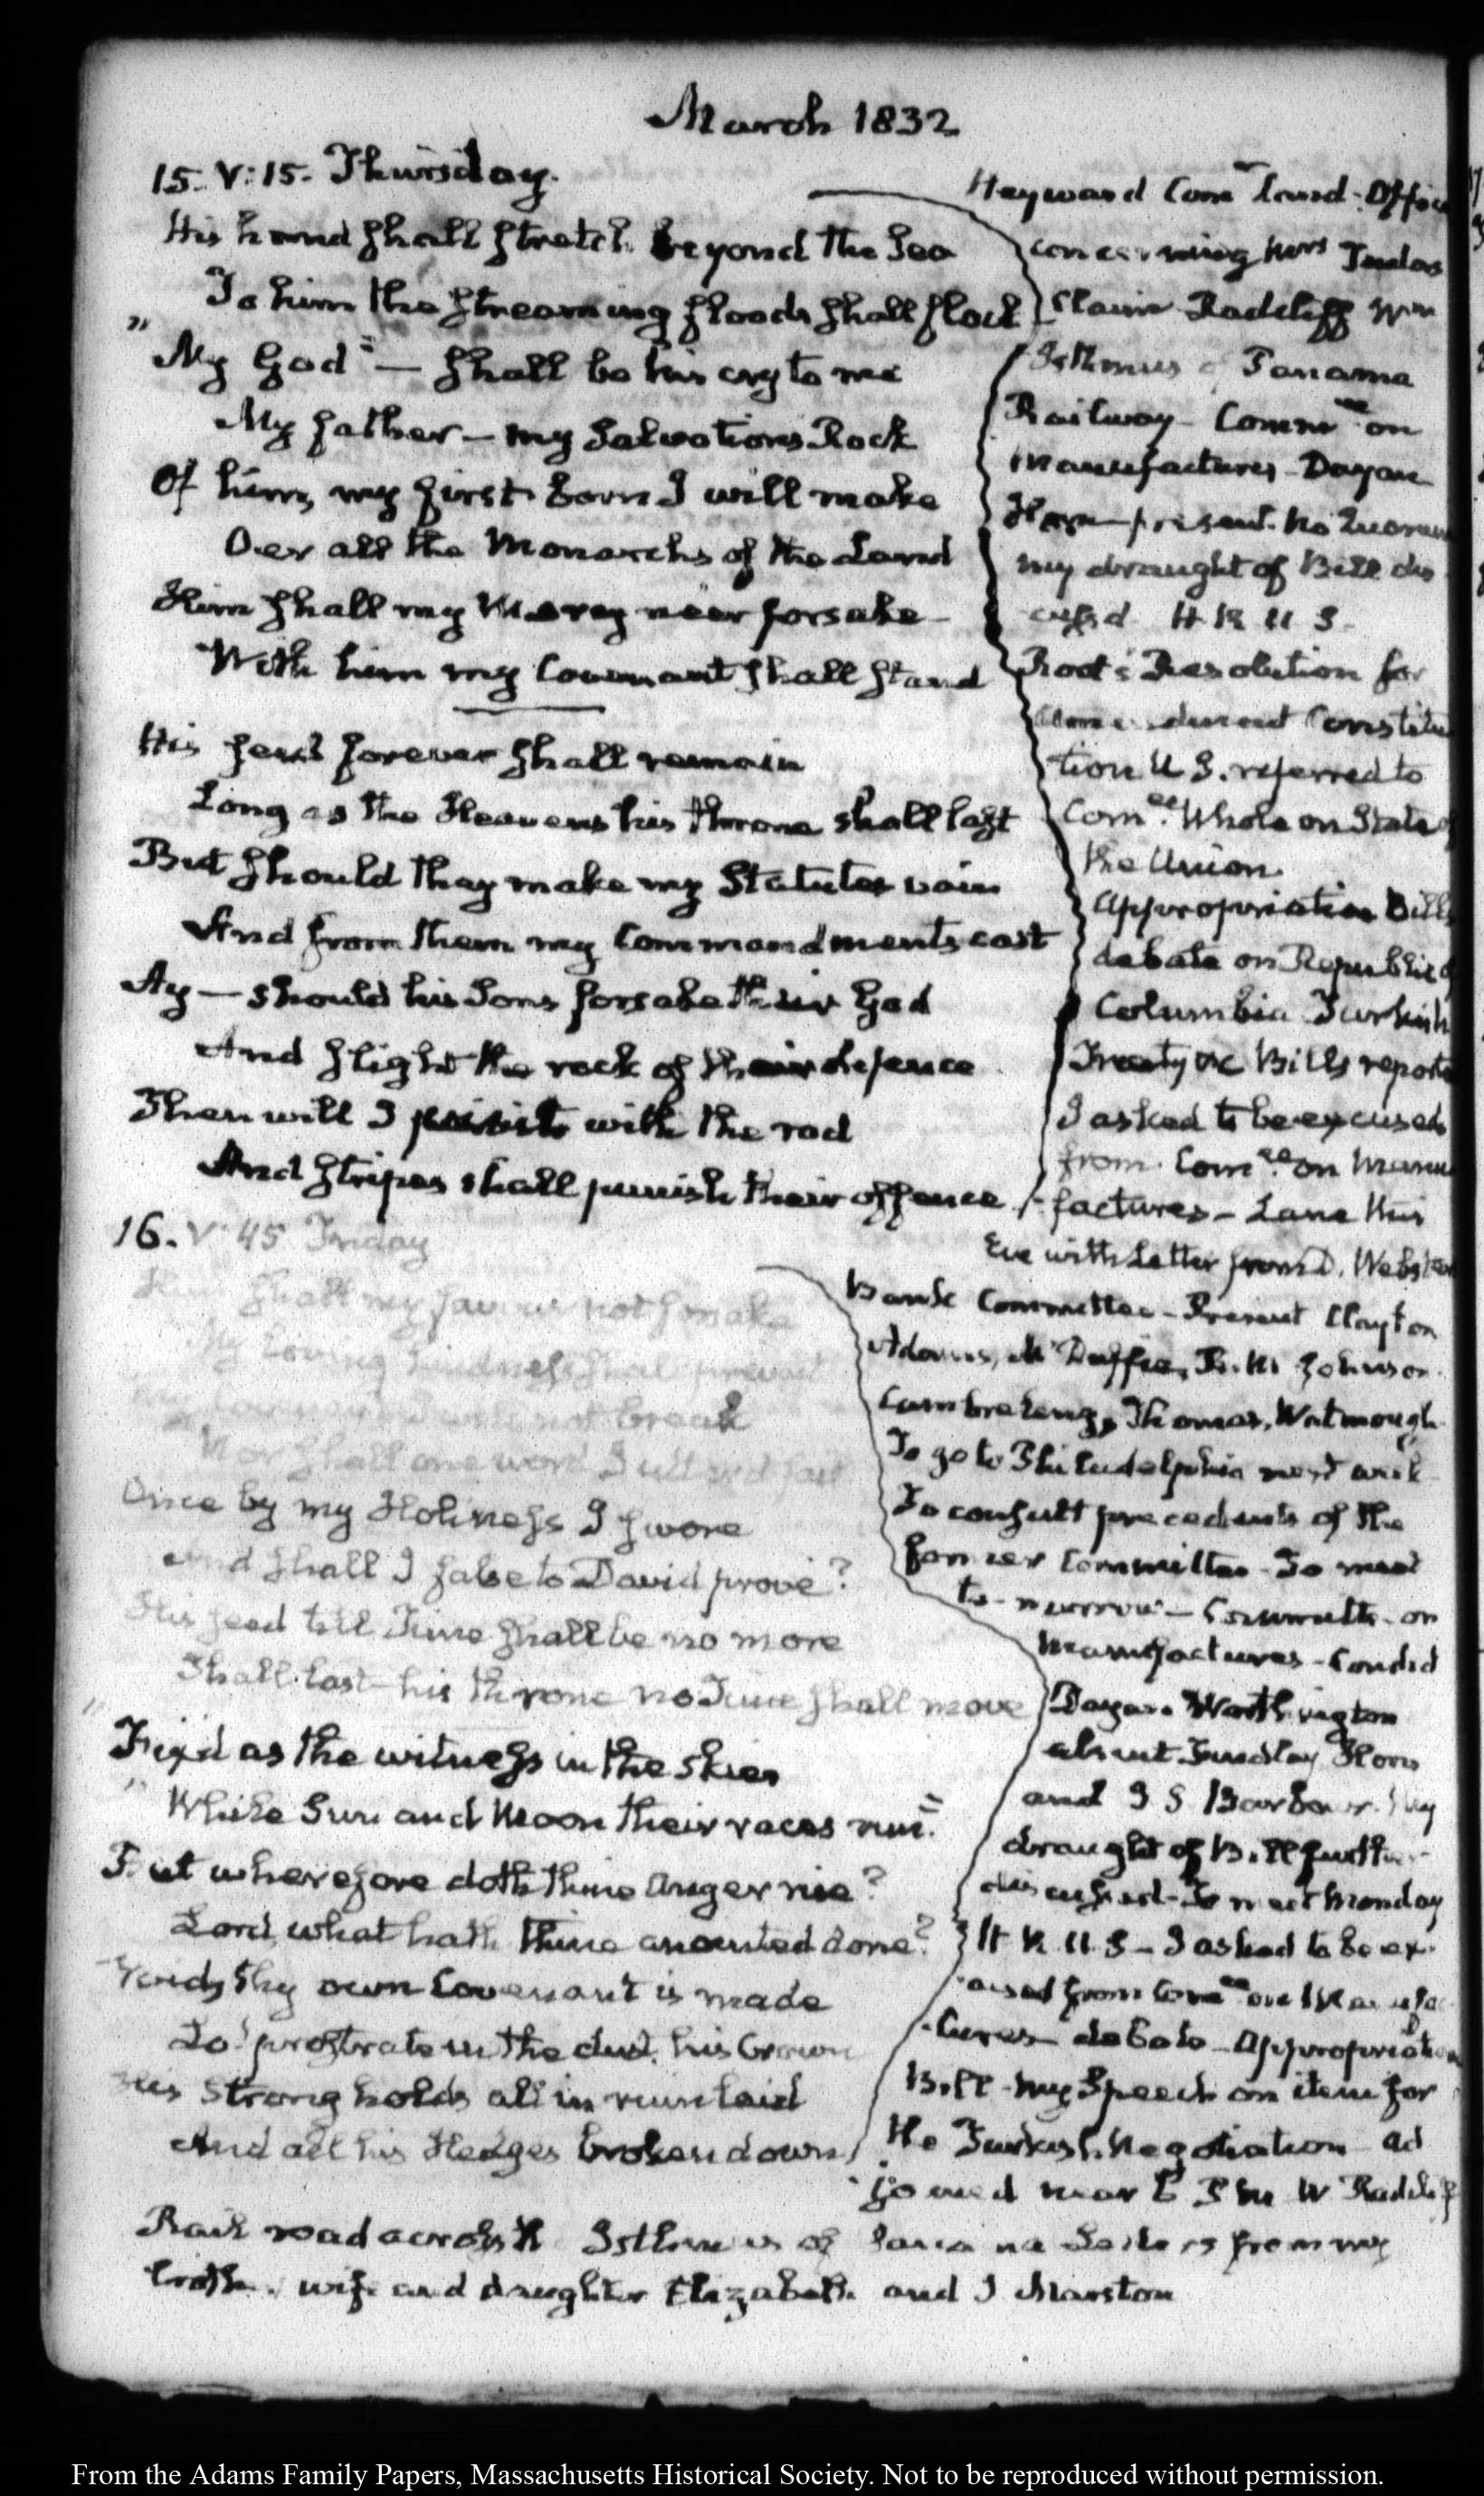 March 1832
15. V:15. Thursday.
His hand shall stretch beyond the Sea
To him the streaming floods shall flock
"My God" — shall be his cry to me
My father — my Salvations Rock
Of him, my first born I will make
Oer all the Monarchs of the Land
Him shall my Mercy neer forsake
With him my Covenant shall stand
His seed forever shall remain
Long as the Heavens his throne shall last
But should they make my Statutes vain
And from them my Commandments cast
Ay — should his Sons forsake their God
And slight the rock of their defence
Then will I visit with the rod
And stripes shall punish their offence
Heyward Com.r Land-Office
concerning Mrs
claim Radcliff Wm
Isthmus of Panama
Railway Comm.ee on
Manufactures - Dayan
Horn present. No Quorum
my draught of Bill dis
cussd H R U S
Root's Resolution for
amendment Constitu
tion U S. referred to
Com.ee Whole on State of
the Union.
Appropriation Bill
debate on Republic of
Columbia Turkish
Treaty &c Bills reported
I asked to be excused
from Com.ee on Manu
factures - Lane this
Eve with Letter from D. Webster
16. V 45 Friday
Him shall my favour not forsake
My loving kindness shall prevail
My covenant I will not break
Nor shall one word I utter fail
Once by my Holiness I swore
And shall I false to David prove?
His seed till Time shall be no more
Shall last — his throne no Time shall move
"Fix'd as the witness in the skies
"While Sun and Moon their races run."
But wherefore doth thine anger rise?
Lord, what hath thine anointed done?
Void, thy own Covenant is made
Lo! prostrate in the dust, his Crown
His strong holds all in ruin laid
And all his Hedges broken down
Bank Committee - Present Clayton
Adams, McDuffie, R. M. Johnson
Cambreleng, Thomas, Watmough
To go to Philadelphia next week
To consult precedents of the
former Committee - To meet
to-morrow - Committee on
Manufactures - Condict
Dayan Worthington
absent Findlay Horn
and J S Barbour. My
draught of Bill further
discussed - To meet Monday
H R U S - I asked to be ex
cused from Com.ee on Manufac
tures - debate - Appropriation
Bill - my Speech on item for
the Turkish Negotiation ad
journed near 6 P M W Radcliff
Rail road across the Isthmus of Panama Letters from my
wife and daughter Elizabeth and J Marston
From the Adams Family Papers, Massachusetts Historical Society. Not to be reproduced without permission.